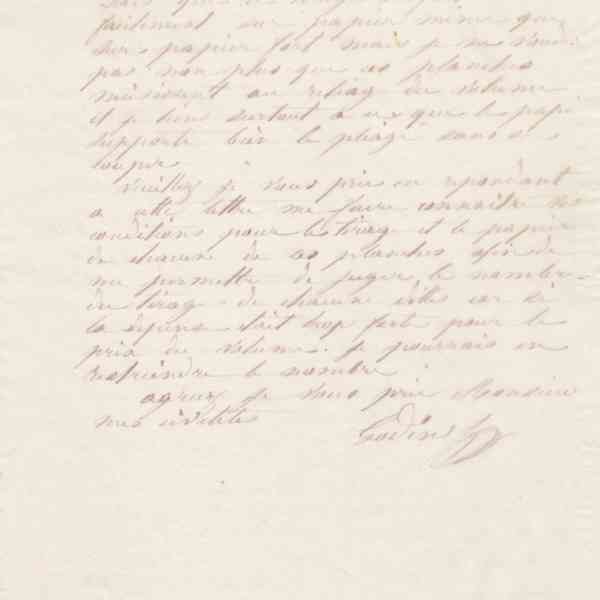 facilement sur papier mince que
sur papier fort mais je ne vous
pas non plus que ces planches
nuisissent au reliage du volume
et je tiens surtout a ce que le papier
supporte bien le pliage sans se
couper
veuillez je vous prie en repondant
a cette lettre me faire connaitre vos
conditions pour le tirage et le papier
de chacune de ces planches afin de
me permettre de juger le nombre
de tirage de chacune d'elles car si
la depense etait trop forte pour le
prix du volume. je pourrais en
restreindre le nombre
agreez je vous prie Monsieur
mes civilités
Godin